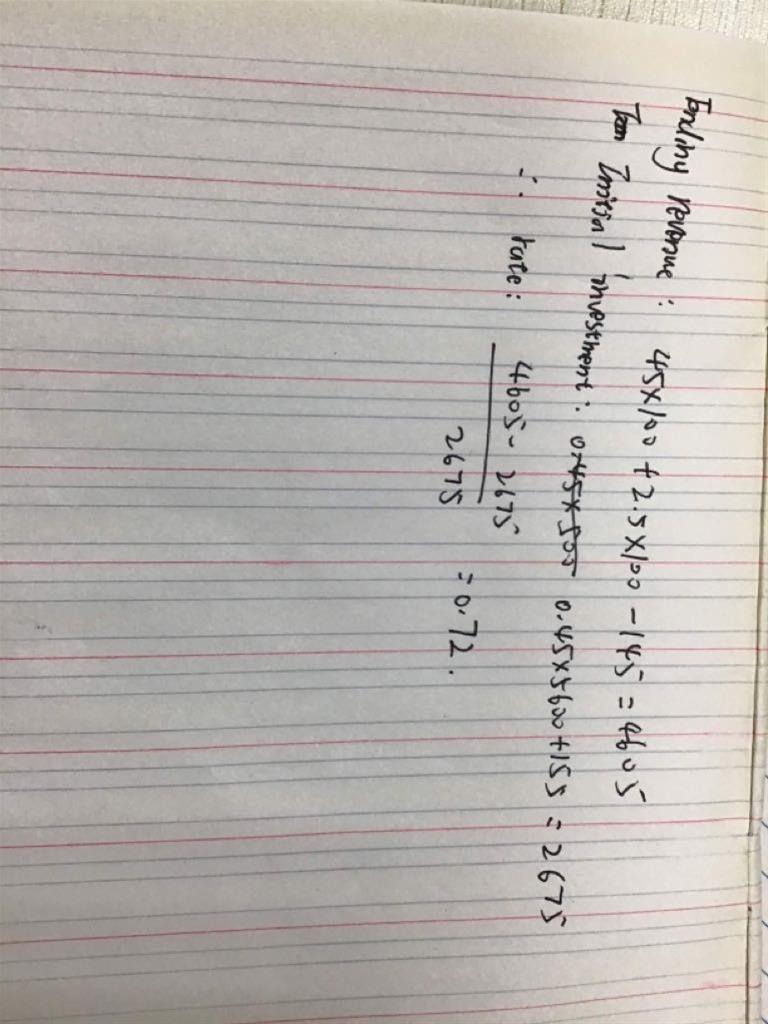 Ending revenue : 45×100 + 2.5×100 - 145 = 4605
Initial investment : 0.45×500 0.45×5600+155 = 2675
∴ rate : 4605 - 2675
2675
= 0.72.